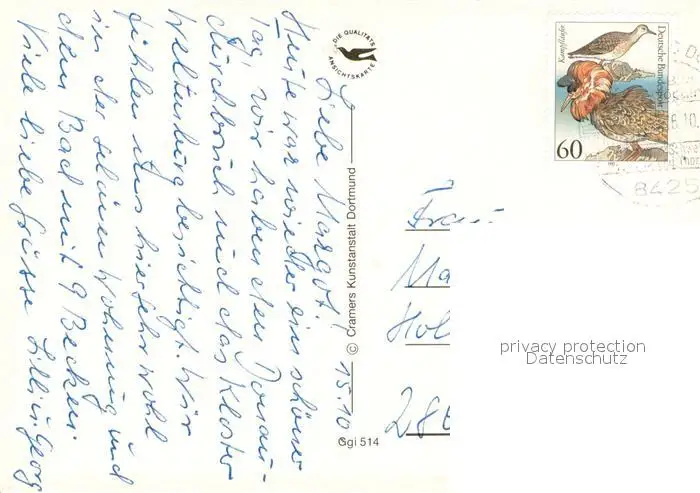 Liebe Margot! 15.10.
Heute war wieder ein schöner
Tag, wir haben den Donau-
durchbruch und das Kloster
Weltenburg besichtigt. Wir
fühlen uns hier sehr wohl
in der schönen Wohnung und
dem Bad mit 9 Becken.
Viele liebe Grüsse Georg
DIE QUALITÄTS
ANSICHTSKARTE
© Cramers Kunstanstalt Dortmund
Ggi 514
Kampfläufer
Deutsche Bundespost
60
8425
Frau
Ma
Hol
28
privacy protection
Datenschutz